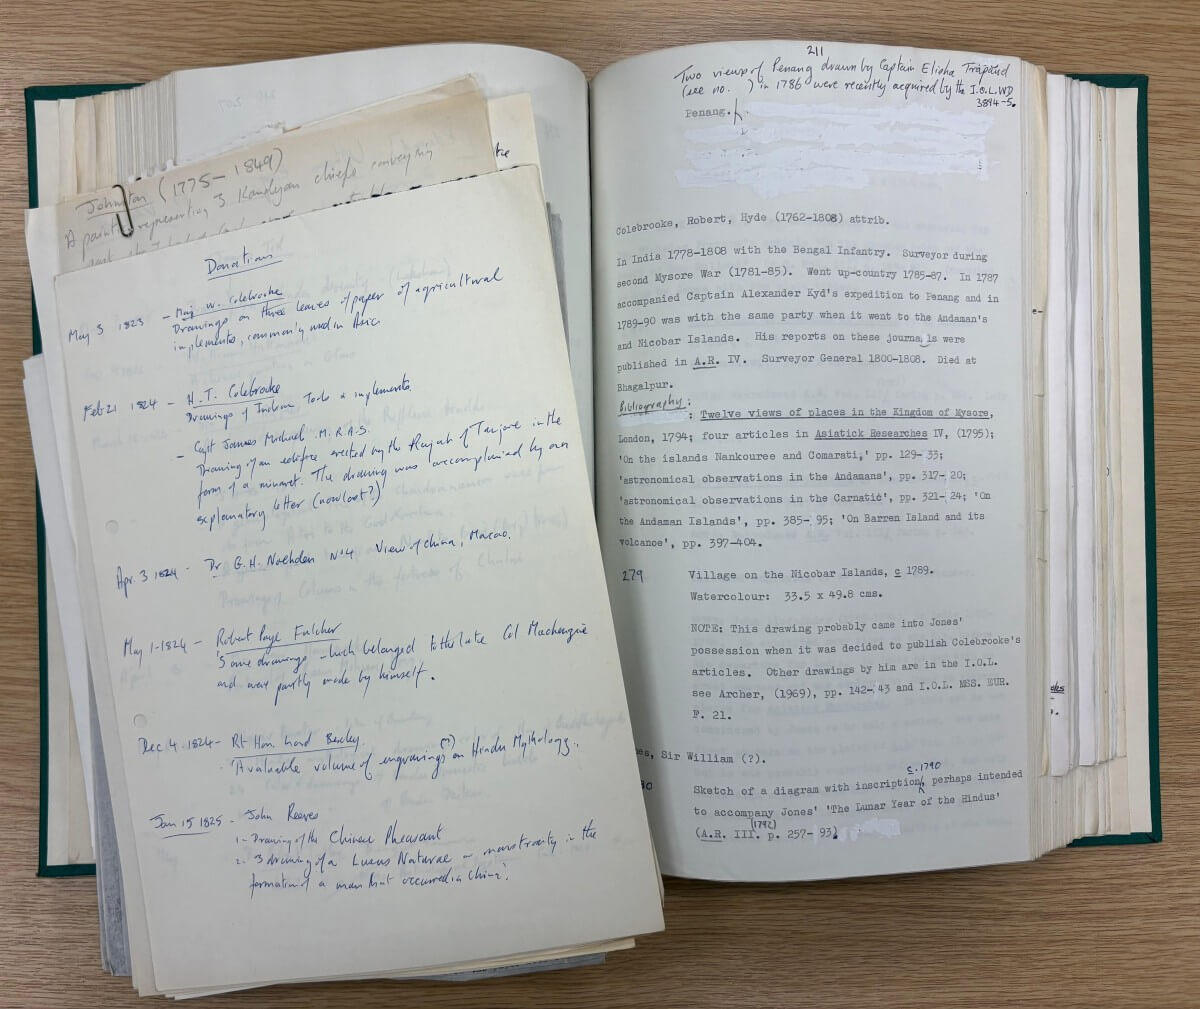 Johnston (1775-1849)
A painting representing 3 Kandyan chiefs conveying
Donations
May 3 1823 - Maj. W. Colebrooke
Drawings on three leaves of paper of agricultural
implements, commonly used in Asia.
Feb 21 1824 - H. T. Colebrooke
Drawings of Indian Tools & implements.
- Capt James Michael M.R.A.S.
Drawing of an edifice erected by the Rajah of Tanjore in the
form of a minaret. The drawing was accompanied by an
explanatory letter (now lost?)
Apr. 3 1824 - Dr. G. H. Noehden No 4 View of China, Macao.
May 1 - 1824 - Robert Page Fulcher
Some drawings which belonged to the late Col Mackenzie
and were partly made by himself.
Dec 4. 1824 - Rt Hon. Lord Bexley.
A valuable volume of engravings (?) on Hindu Mythology.
Jan 15 1825 - John Reeves
1 - Drawing of the Chinese Pheasant
2. 3 drawing of a Lusus Naturae or monstrosity in the
formation of a man that occurred in China.
211
Two views of Penang drawn by Captain Elisha Trapaud
(see no. ) in 1786 were recently acquired by the I.O.L. WD
3894-5.
Penang.
Colebrooke, Robert, Hyde (1762-1808) attrib.
In India 1778-1808 with the Bengal Infantry. Surveyor during
second Mysore War (1781-85). Went up-country 1785-87. In 1787
accompanied Captain Alexander Kyd's expedition to Penang and in
1789-90 was with the same party when it went to the Andaman's
and Nicobar Islands. His reports on these journals were
published in A.R. IV. Surveyor General 1800-1808. Died at
Bhagalpur.
Bibliography:
: Twelve views of places in the Kingdom of Mysore,
London, 1794; four articles in Asiatick Researches IV, (1795);
'On the islands Nankouree and Comarati,' pp. 129-33;
'astronomical observations in the Andamans', pp. 317-20;
'astronomical observations in the Carnatic', pp. 321-24; 'On
the Andaman Islands', pp. 385-95; 'On Barren Island and its
volcanoe', pp. 397-404.
279 Village on the Nicobar Islands, c 1789.
Watercolour: 33.5 x 49.8 cms.
NOTE: This drawing probably came into Jones'
possession when it was decided to publish Colebrooke's
articles. Other drawings by him are in the I.O.L.
see Archer, (1969), pp. 142-43 and I.O.L. MSS. EUR.
F. 21.
es, Sir William (?).
c. 1790
80 Sketch of a diagram with inscription, perhaps intended
to accompany Jones' 'The Lunar Year of the Hindus'
(1792)
(A.R. III. p. 257-93)